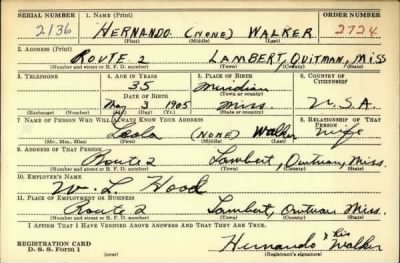 SERIAL NUMBER 1. NAME (Print) ORDER NUMBER
2136 HERNANDO (NONE) WALKER 2724
(First) (Middle) (Last)
2. ADDRESS (Print)
ROUTE 2 LAMBERT, QUITMAN, MISS
(Number and street or R. F. D. number) (Town) (County) (State)
3. TELEPHONE 4. AGE IN YEARS 5. PLACE OF BIRTH 6. COUNTRY OF CITIZENSHIP
35 Meridian
DATE OF BIRTH (Town or county)
May 3 1905 Miss. U.S.A.
(Exchange) (Number) (Mo.) (Day) (Yr.) (State or country)
7. NAME OF PERSON WHO WILL ALWAYS KNOW YOUR ADDRESS 8. RELATIONSHIP OF THAT PERSON
Leola (NONE) Walker Wife
(Mr., Mrs., Miss) (First) (Middle) (Last)
9. ADDRESS OF THAT PERSON
Route 2 Lambert, Quitman, Miss.
(Number and street or R. F. D. number) (Town) (County) (State)
10. EMPLOYER'S NAME
W. L. Hood
11. PLACE OF EMPLOYMENT OR BUSINESS
Route 2 Lambert, Quitman Miss.
(Number and street or R. F. D. number) (Town) (County) (State)
I AFFIRM THAT I HAVE VERIFIED ABOVE ANSWERS AND THAT THEY ARE TRUE.
REGISTRATION CARD
D. S. Form 1 (over) Hernando x his Walker
(Registrant's signature)